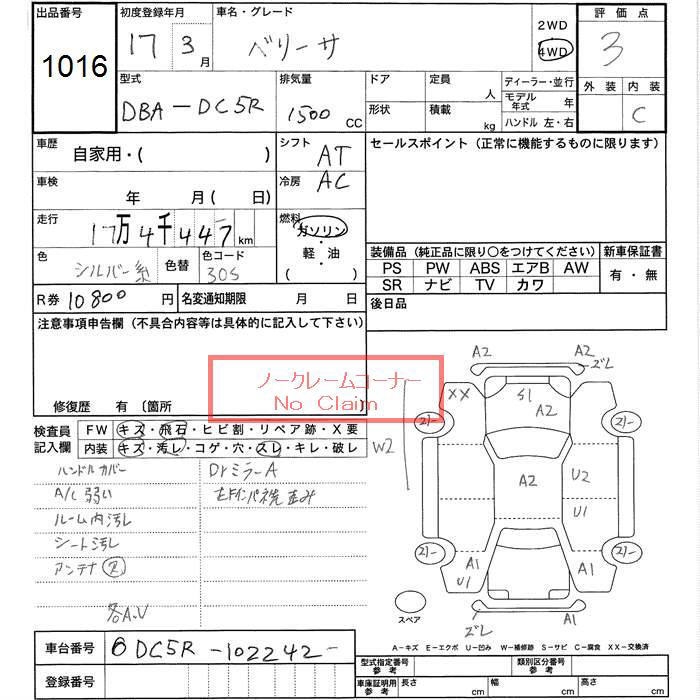 出品番号 初度登録年月 車名・グレード 2WD 評価点
1016 17 3月 ベリーサ 4WD 3
型式 排気量 ドア 定員 人 ディーラー・並行 外装 内装
DBA-DC5R 1500 CC 形状 積載 kg モデル年式 年 C
ハンドル 左・右
車歴 自家用・( ) シフト AT セールスポイント(正常に機能するものに限ります)
車検 年 月( 日) 冷房 AC
走行 17万4千447km 燃料 ガソリン・軽油
色 シルバー系 色替 色コード 30S ( )
装備品(純正品に限り○をつけてください) 新車保証書
PS PW ABS エアB AW 有・無
SR ナビ TV カワ
R券 10800円 名変通知期限 月 日 後日品
注意事項申告欄(不具合内容等は具体的に記入して下さい)
ノークレームコーナー
No Claim
修復歴 有 〔箇所 〕
検査員記入欄 FW キズ・飛石・ヒビ割・リペア跡・X要
内装 キズ・汚レ・コゲ・穴・スレ・キレ・破レ
ハンドルカバー DrミラーA
A/C弱い
ルーム内汚レ
シート汚レ
アンテナ欠
各A.U
A2 A2 ズレ
XX S1 A2
21- 21-
W2 A2 U2
U1
21- 21-
A1 U1 A1
ズレ A1
スペア
A-キズ E-エクボ U-凹み W-補修跡 S-サビ C-腐食 XX-交換済
車台番号 DC5R-102242-
登録番号
型式指定番号 参考 類別区分番号 参考
車庫証明用 参考 長さ cm 幅 cm 高さ cm